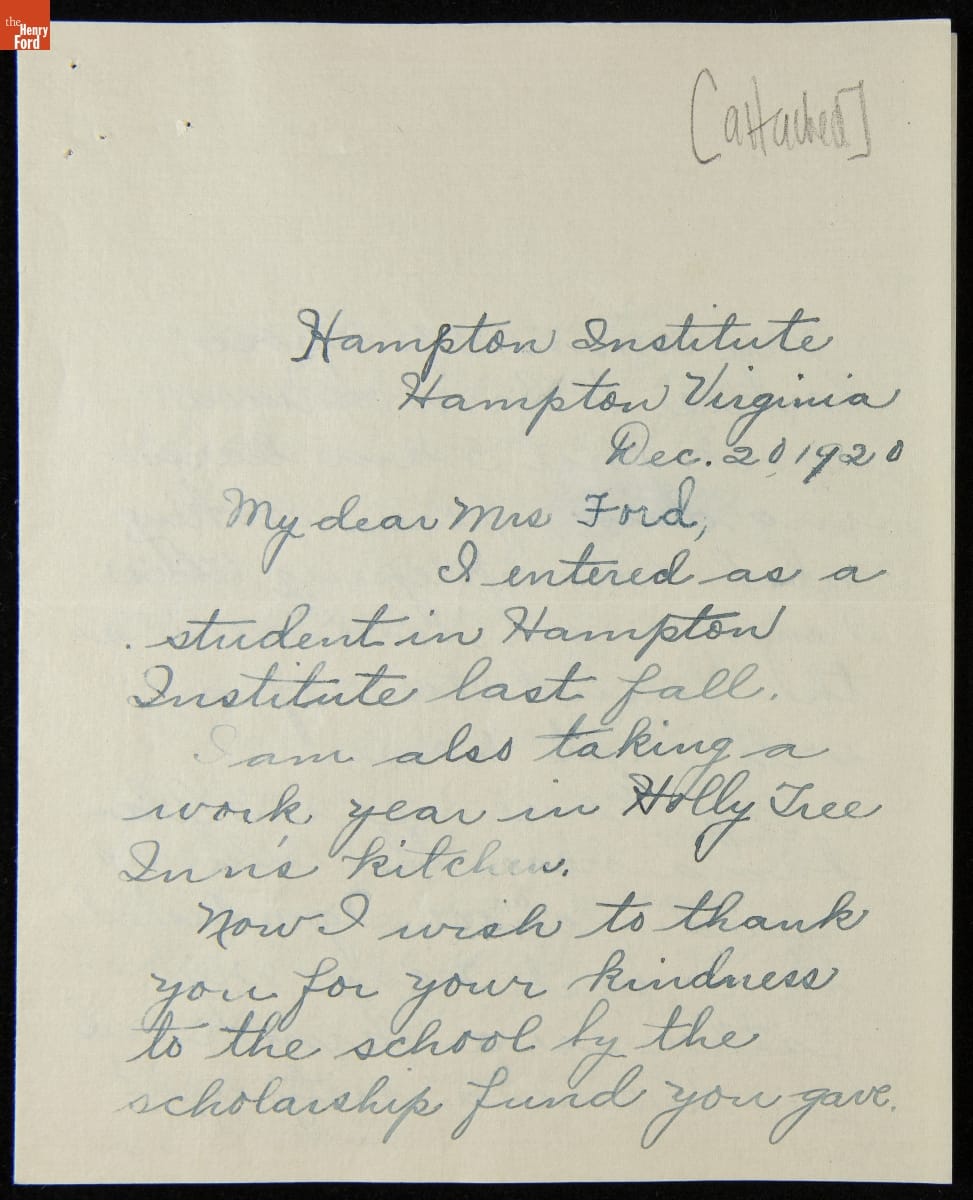 the
Henry
Ford
[attached]
Hampton Institute
Hampton Virginia
Dec. 20, 1920
My dear Mrs Ford,
I entered as a
student in Hampton
Institute last fall.
I am also taking a
work year in Holly Tree
Inn's kitchen.
Now I wish to thank
you for your kindness
to the school by the
scholarship fund you gave.